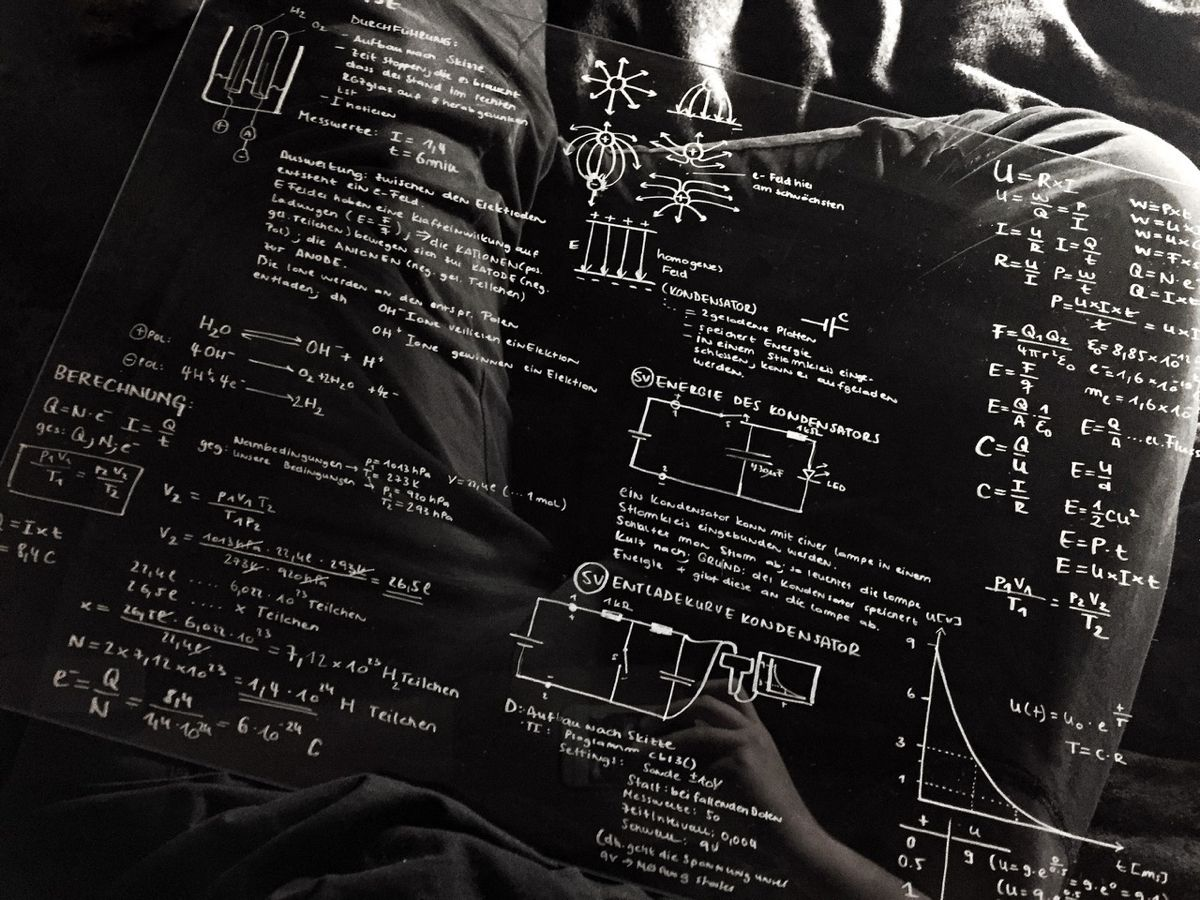 H₂
O₂
DURCHFÜHRUNG:
- Aufbau nach Skizze
- Zeit stoppen, die es braucht
dass der Stand im rechten
RGZglas auf 8 herabgesunken
ist
- I notieren
Messwerte: I = 1,4
t = 6min
+
A
-
Auswertung: zwischen den Elektroden
entsteht ein e-Feld.
E Felder haben eine Krafteinwirkung auf
Ladungen (E=F/q), ⇒ die KATIONEN (pos.
gel. Teilchen) bewegen sich zur KATODE (neg.
Pol), die ANIONEN (neg. gel. Teilchen)
zur ANODE.
Die Ione werden an den entspr. Polen
entladen, dh
OH⁻ Ione verlieren ein Elektion
OH⁺ Ione gewinnen ein Elektion
H₂O ⇌ OH⁻ + H⁺
⊕ POL: 4OH⁻ → O₂ + 2H₂O + 4e⁻
⊖ POL: 4H⁺ + 4e⁻ → 2H₂
BERECHNUNG:
Q = N·e⁻ I = Q/t
ges: Q, N, e⁻
P₁V₁/T₁ = P₂V₂/T₂
geg: Normbedingungen → P₁ = 1013 hPa
T₁ = 273 K
V = 22,4l (... 1mol)
unsere Bedingungen → P₂ = 920 hPa
T₂ = 293 hPa
V₂ = P₁V₁T₂/T₁P₂
= I×t
= 8,4 C
V₂ = 1013hPa · 22,4l · 293K / 273K · 920hPa = 26,5l
22,4l ..... 6,022·10²³ Teilchen
26,5l ..... x Teilchen
x = 26,5l · 6,022·10²³ / 22,4l = 7,12×10²³ H₂ Teilchen
N = 2×7,12×10²³ = 1,4·10²⁴ H Teilchen
e⁻ = Q/N = 8,4/1,4·10²⁴ = 6·10⁻²⁴ C
e-Feld hier
am schwächsten
+ + + +
E
- - - -
homogenes
Feld
(KONDENSATOR)
= 2 geladene Platten
- speichert Energie
- in einem Stromkreis einge-
schlossen, kann er aufgeladen
werden.
C
SV ENERGIE DES KONDENSATORS
1
2
S
1kΩ
470µF
LED
ein Kondensator kann mit einer Lampe in einem
Stromkreis eingebunden werden.
Schaltet man Strom ab, so leuchtet die Lampe
kurz nach; GRUND: der Kondensator speichert
Energie + gibt diese an die Lampe ab.
SV ENTLADEKURVE KONDENSATOR
1
+
1kΩ
S
2
-
D: Aufbau nach Skizze
TI: Programm cbl3()
Settings: Sonde ±10V
Start: bei fallenden Daten
Messwerte: 50
Zeitintervall: 0,004
Schwell: 9V
(dh. geht die Spannung unter
9V → Messung startet
U = R×I
U = W/Q = P/I
I = U/R I = Q/t
R = U/I P = W/t
P = U×I×t/t = U×I
W = P×t
W = U×
W = U×
W = F×s
Q = N·e
Q = I×t
F = Q₁Q₂/4πr²ε₀
ε₀ = 8,85×10
E = F/q
e⁻ = 1,6×10
mₑ = 1,6×10
E = Q/A · 1/ε₀
E = Q/A ... el. Fluss
C = Q/U E = U/d
C = I/R E = ½CU²
E = P·t
E = U×I×t
P₁V₁/T₁ = P₂V₂/T₂
U[V]
9
6
3
1
t[ms]
U(t) = U₀·e^(t/τ)
T = C·R
t U
0 9 (U = 9·e^(0/0.5) = 9·e⁰ = 9·1)
0.5 (U = 9·e^(0.5
1